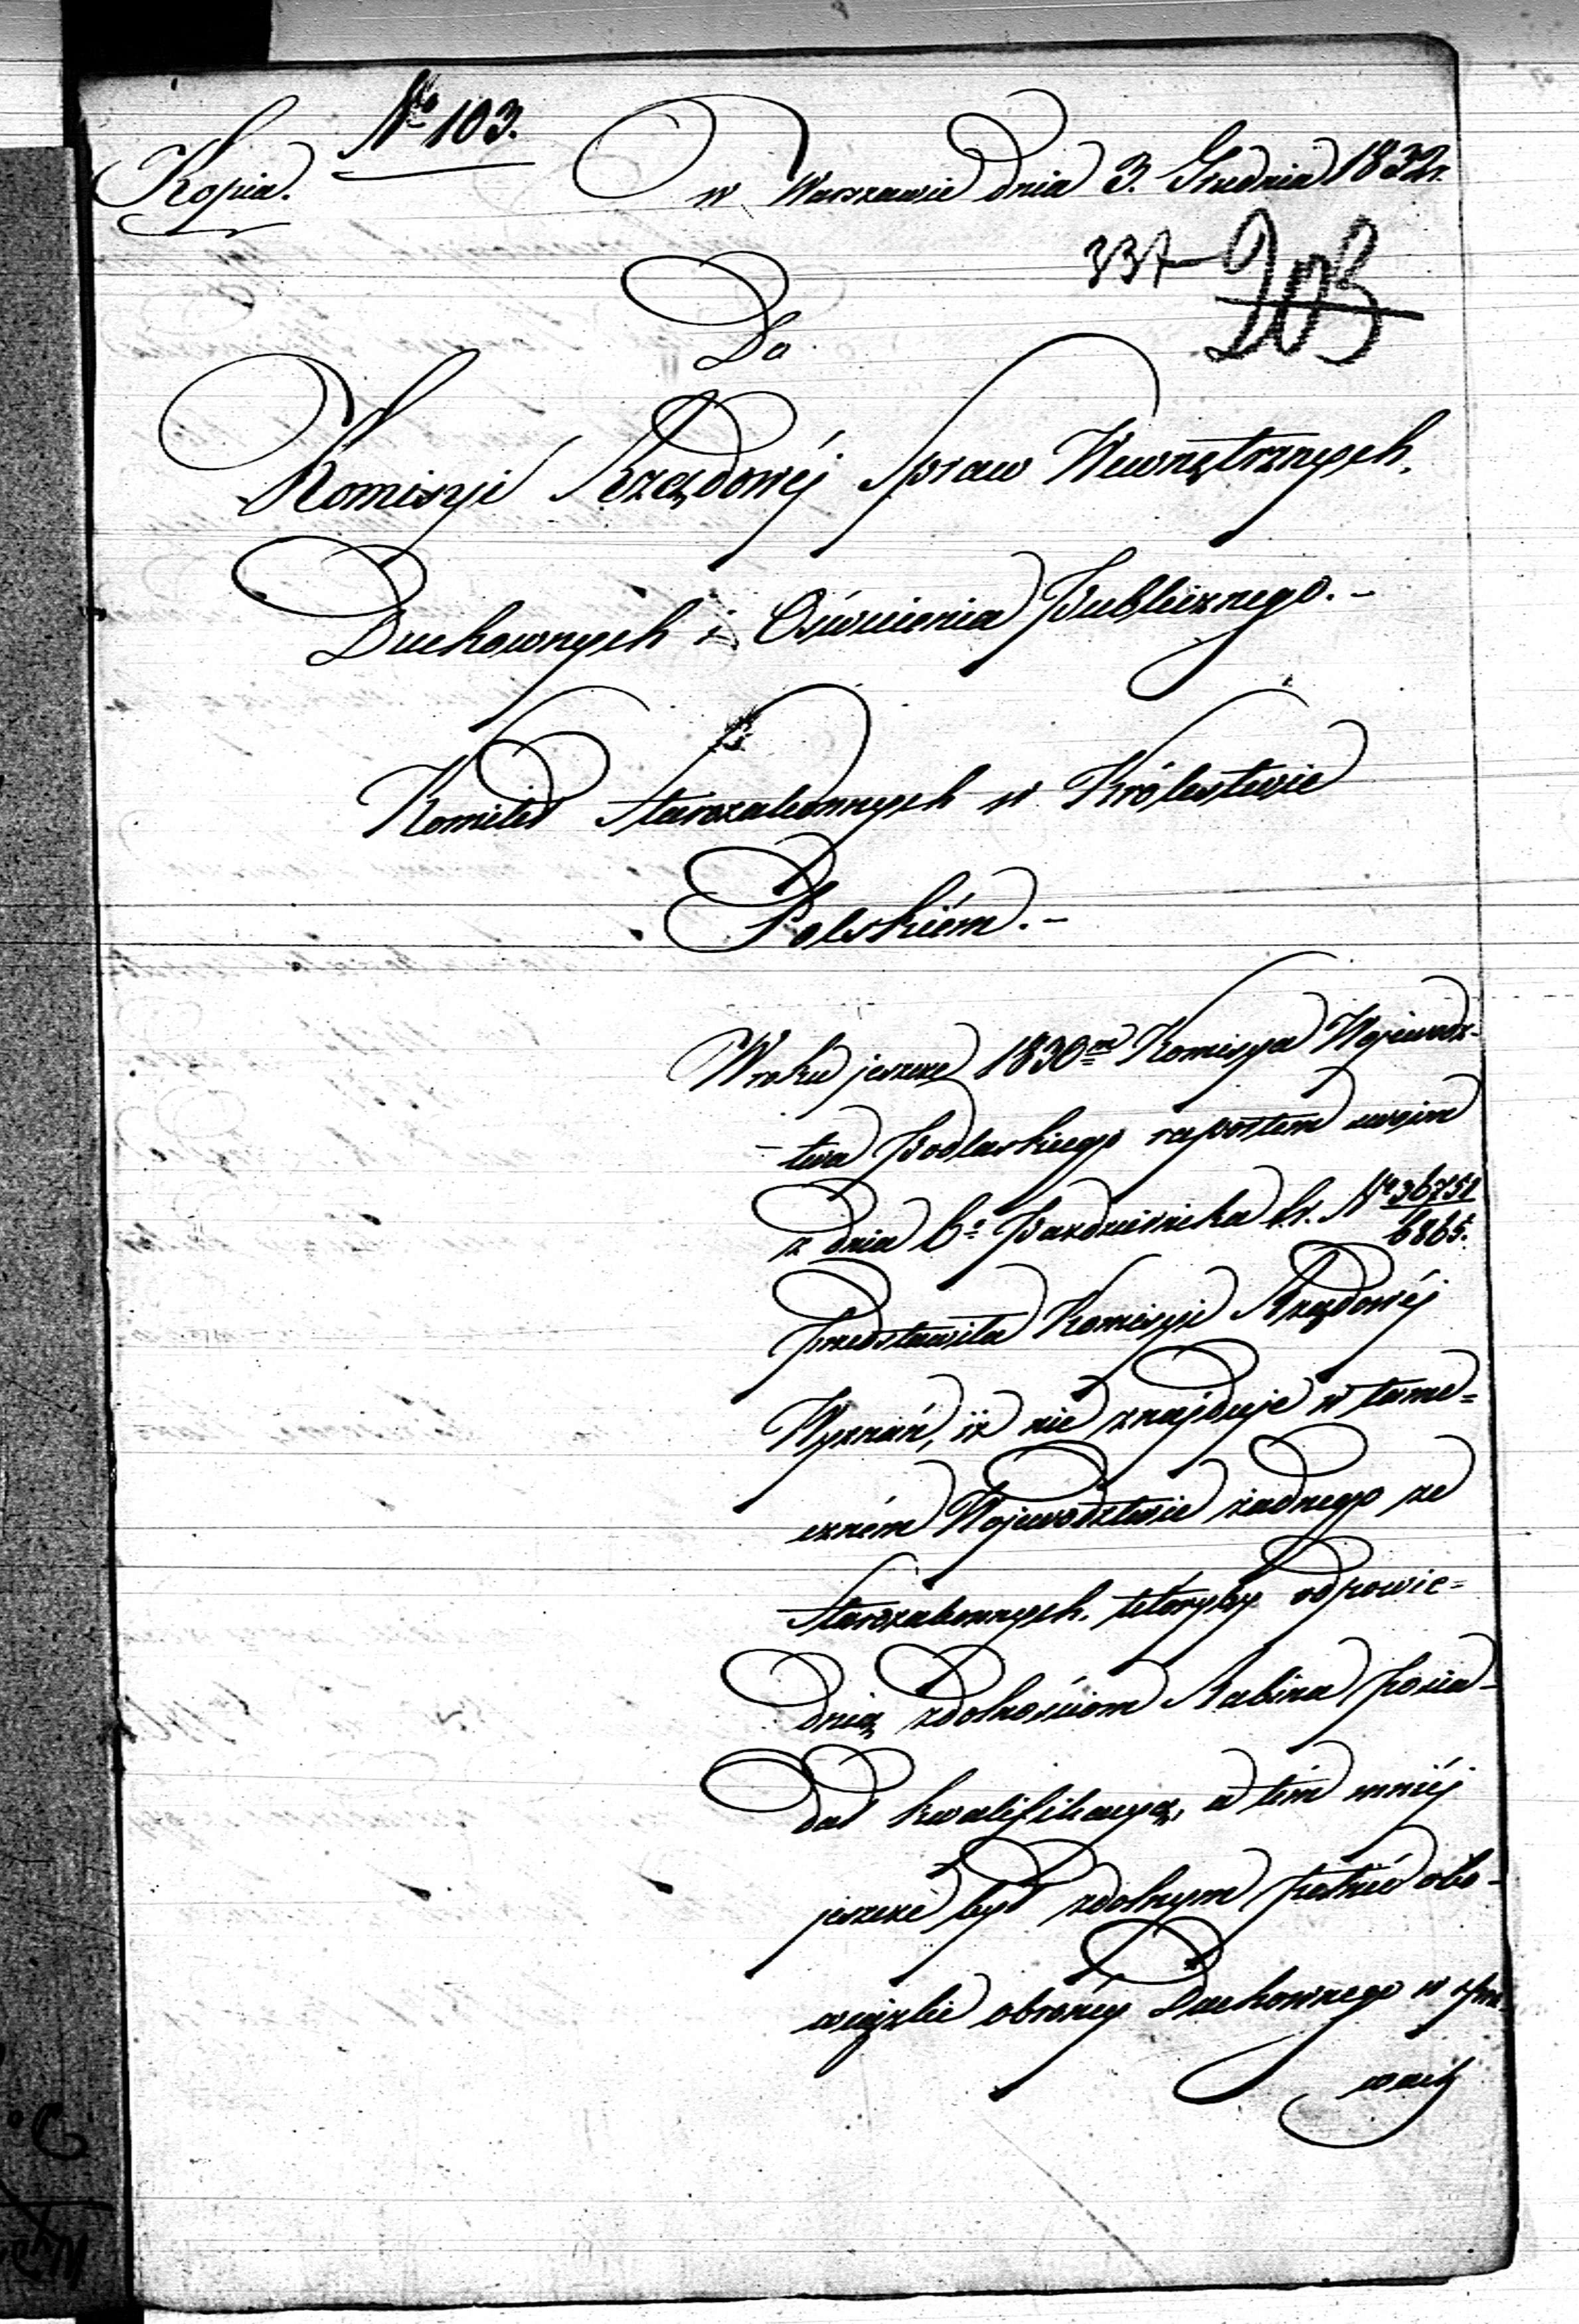 Nº 103.
Kopia.
w Warszawie dnia 3. Grudnia 1832 r.
337 203
Do
Komissyi Rządowéj Spraw Wewnętrznych,
Duchownych i Oświecenia Publicznego.-
Komitet Starozakonnych w Królestwie
Polskiém.-
W roku jeszcze 1830m Komisya Wojewódz-
-twa Podlaskiego raportem swoim
z dnia 6º Października t.r. Nº 36751/6865.
przedstawiła Komisyi Rządowéj
Wyznań, iż nie znajduje w tame=
czném Województwie żadnego ze
Starozakonnych, któryby odpowie=
dnią zdolnościom Rabina posia-
dał kwalifikacyą, a tém mniéj
jeszcze był zdolnym pełnić obo-
wiązki obrońcy Duchownego w spra-
wach